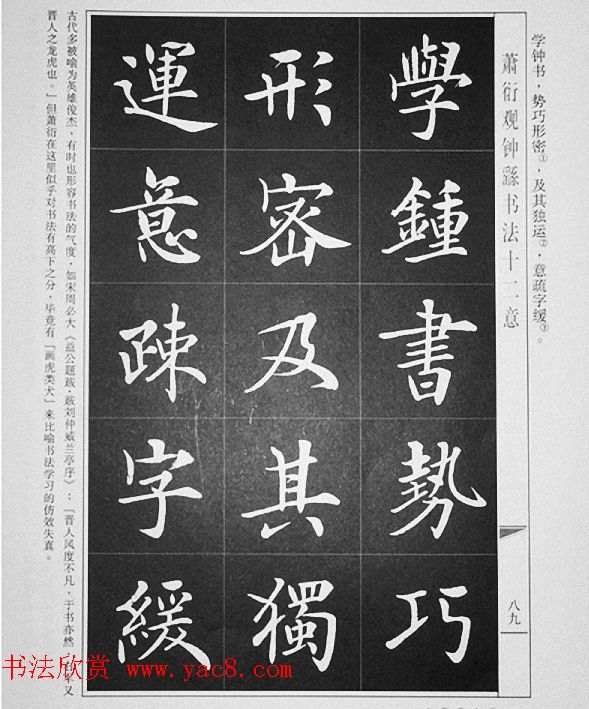 学钟书，势巧形密①，及其独运②，意疏字缓③。
萧衍观钟繇书法十二意
八九
學鍾書勢巧
形密及其獨
運意疎字緩
古代多被喻为英雄俊杰，有时也形容书法的气度，如宋周必大《益公题跋·跋刘仲威兰亭序》：「晋人风度不凡，于书亦然，
又
晋人之龙虎也。」但萧衍在这里似乎对书法有高下之分，毕竟有「画虎类犬」来比喻书法学习的仿效失真。
书法欣赏 www.yac8.com